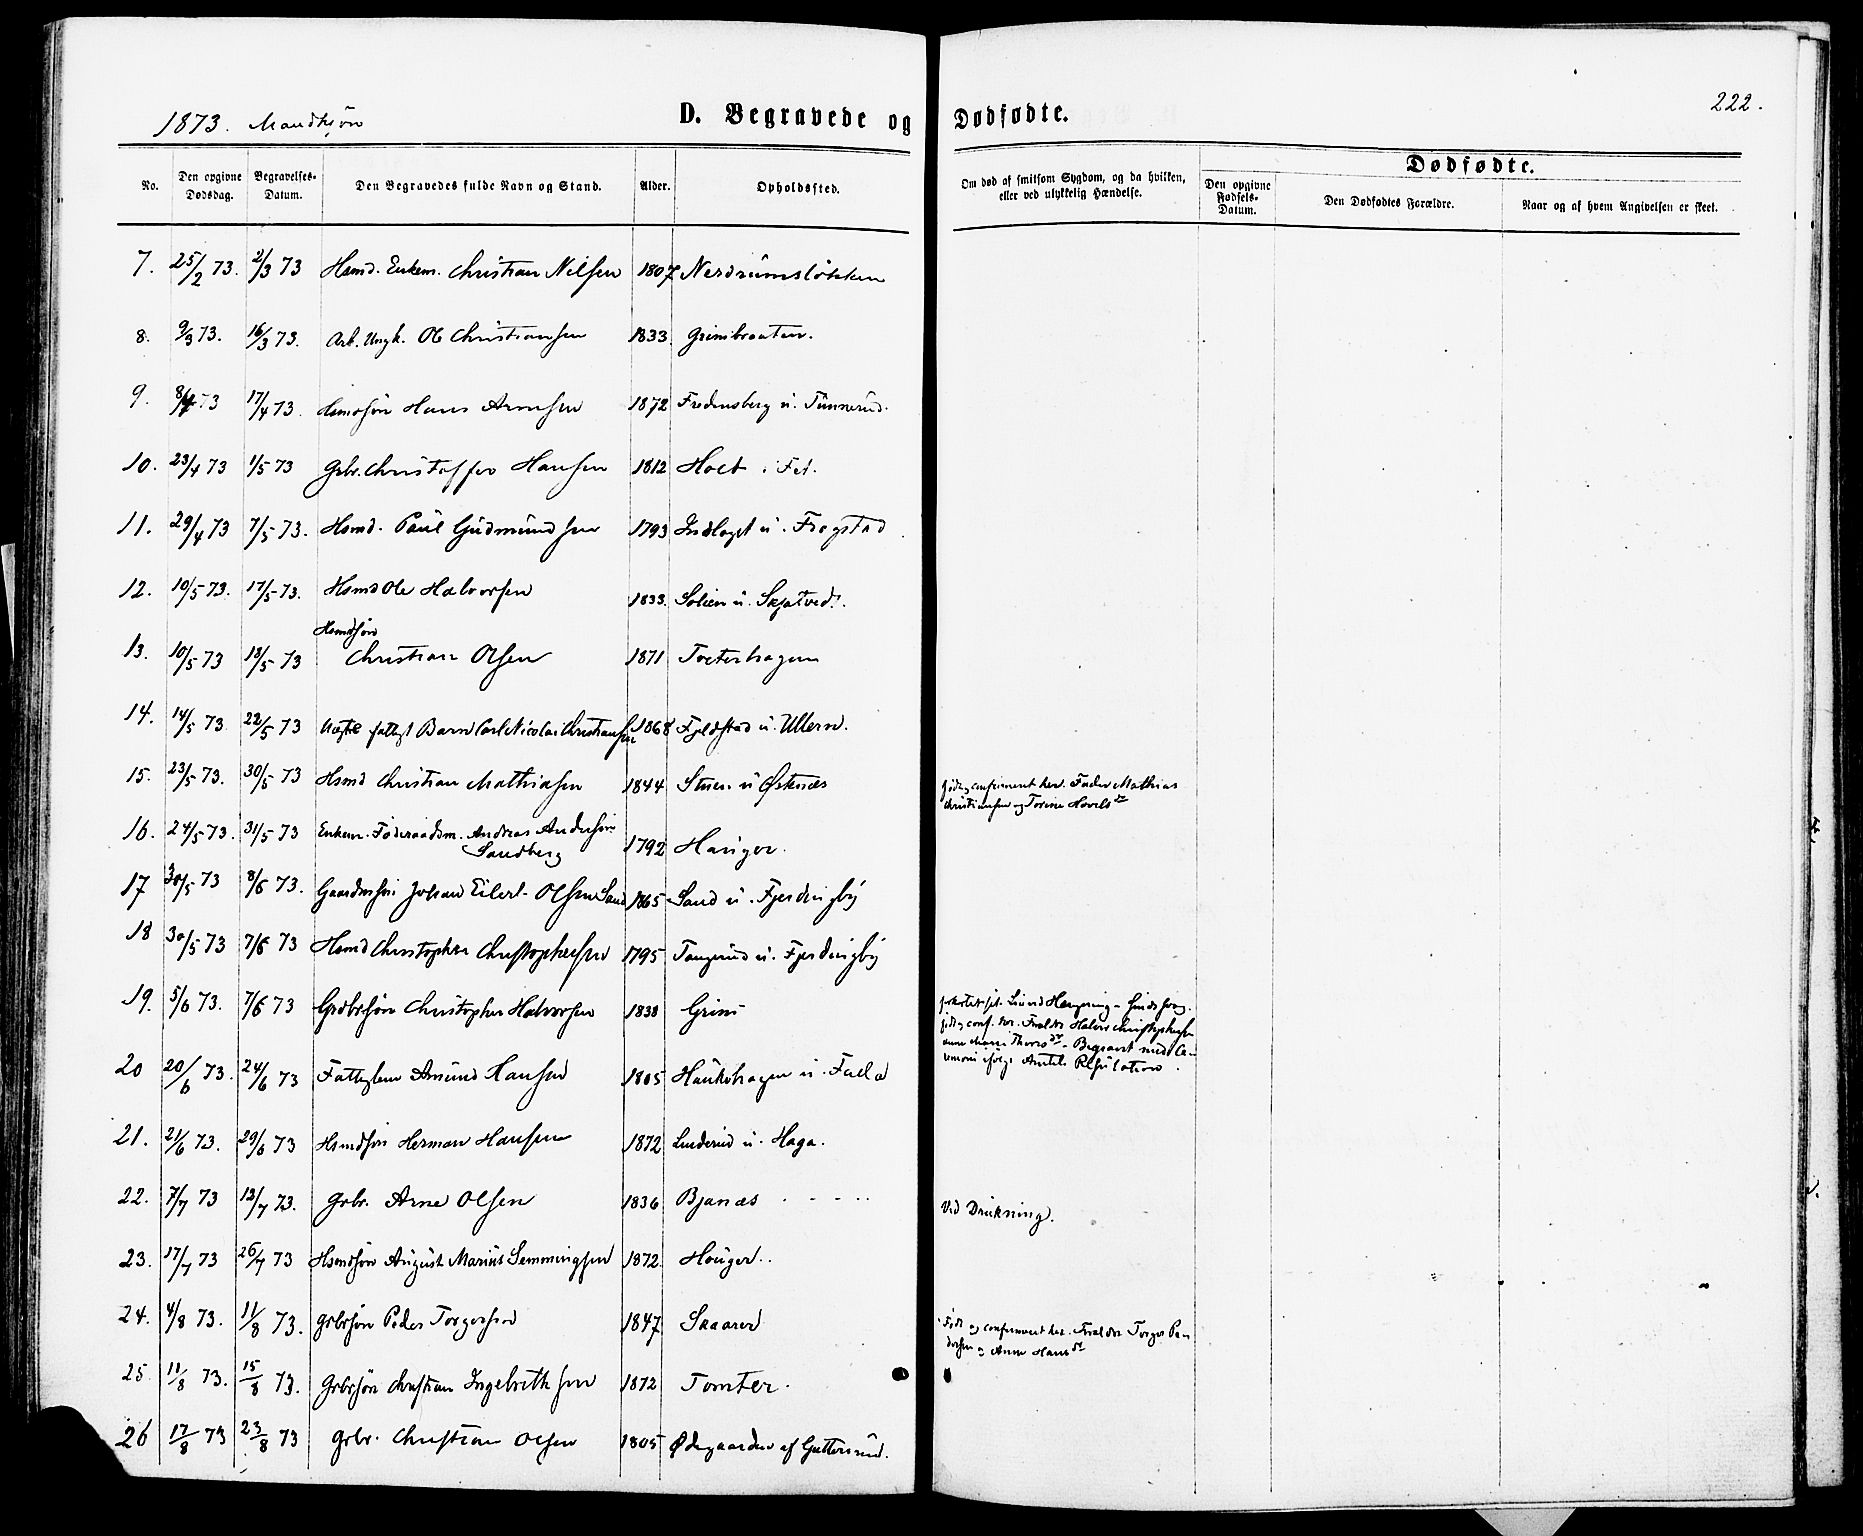 1873. Mandkjøn
D. Begravede og Dødfødte.
222.
No.
Den opgivne Dødsdag.
Begravelses-Datum.
Den Begravedes fulde Navn og Stand.
Alder.
Opholdssted.
Om død af smitsom Sygdom, og da hvilken, eller ved ulykkelig Hændelse.
Dødfødte.
Den opgivne Fødsels-Datum.
Den Dødfødtes Forældre.
Naar og af hvem Angivelsen er skeet.
7. 25/2 73. 2/3 73 Hsmd. Enkem. Christian Nilsen 1807 Nerdrumsløkken
8. 9/3 73. 16/3 73. Arb. Ungk. Ole Christiansen 1833. Grinibraaten.
9. 8/4 73 17/4 73. Hsmdsøn Hans Arnesen 1872 Fredensberg u. Tünnerud.
10. 23/4 73 1/5 73 Grbr. Christoffer Hansen 1812 Holt i Fet.
11. 29/4 73 7/5 73. Hsmd. Paul Gudmundsen 1793 Indlaget u. Frogstad
12. 10/5 73. 17/5 73. Hsmd Ole Halvorsen 1833. Solien u. Skjatved.
13. 10/5 73 18/5 73 Hsmdsøn Christian Olsen 1871 Toeterhagen
14. 14/5 73 22/5 73 Uægte fattigt Barn Carl Nicolai Christiansen 1868 Fjeldstad u. Ullern.
15. 23/5 73. 30/5 73 Hsmd Christian Mathiasen 1844 Stuen u Østenæs
født og confirmeret her. Fader Mathias
Christiansen og Torine Hovels dr
16. 24/5 73. 31/5 73 Enkem. Føderaadsm. Andreas Andersen
Sandberg 1792 Hauger.
17 30/5 73 8/6 73. Gaardmsøn Johan Eilert Olsen Sand 1865 Sand u. Fjerdingby
18 30/5 73 7/6 73 Hsmd Christopher Christophersen 1795 Tangerud u. Fjerdingby
19. 5/6 73. 7/6 73 Grdbrsøn Christopher Halvorsen 1838 Grini
Liv ved Hængning
født og conf. her. Forældre Halvor Christophersen
Thores dr - Begravet med Ce-
remoni ifølge Amtets Resolution.
20 20/6 73. 24/6 73 Fattiglem Amund Hansen 1805 Haukehagen u. Falla
21. 21/6 73. 29/6 73 Hsmdsøn Herman Hansen 1872 Linderud u. Haga.
22. 7/7 73 13/7 73. Grbr. Arne Olsen 1836 Bjanæs
Ved Drukning.
23. 17/7 73 26/7 73 Hsmdsøn August Marius Semmingsen 1872 Houger..
24. 4/8 73. 11/8 73. Grbrsøn Peder Torgersen 1847 Skaarer
Født og confirmeret her. Forældre Torger Pe-
dersen og Anne Hans dr
25. 11/8 73. 15/8 73. Grbrsøn Christian Ingebrethsen 1872 Tomter.
26 17/8 73 23/8 73 Grbr. Christian Olsen 1805 Ødegaarden af Guttersrud.